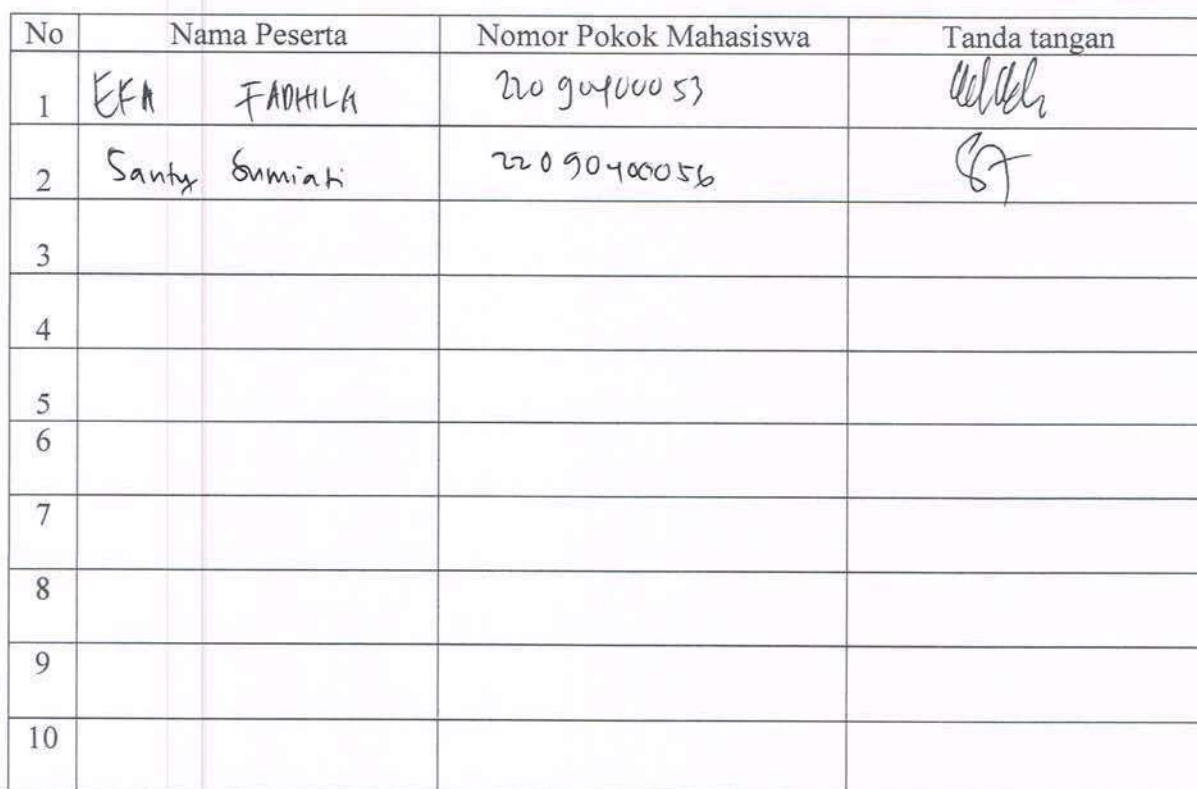 No Nama Peserta Nomor Pokok Mahasiswa Tanda tangan
1 EFA FADHILA 22090400053
2 Santy Sumiati 22090400056
3
4
5
6
7
8
9
10